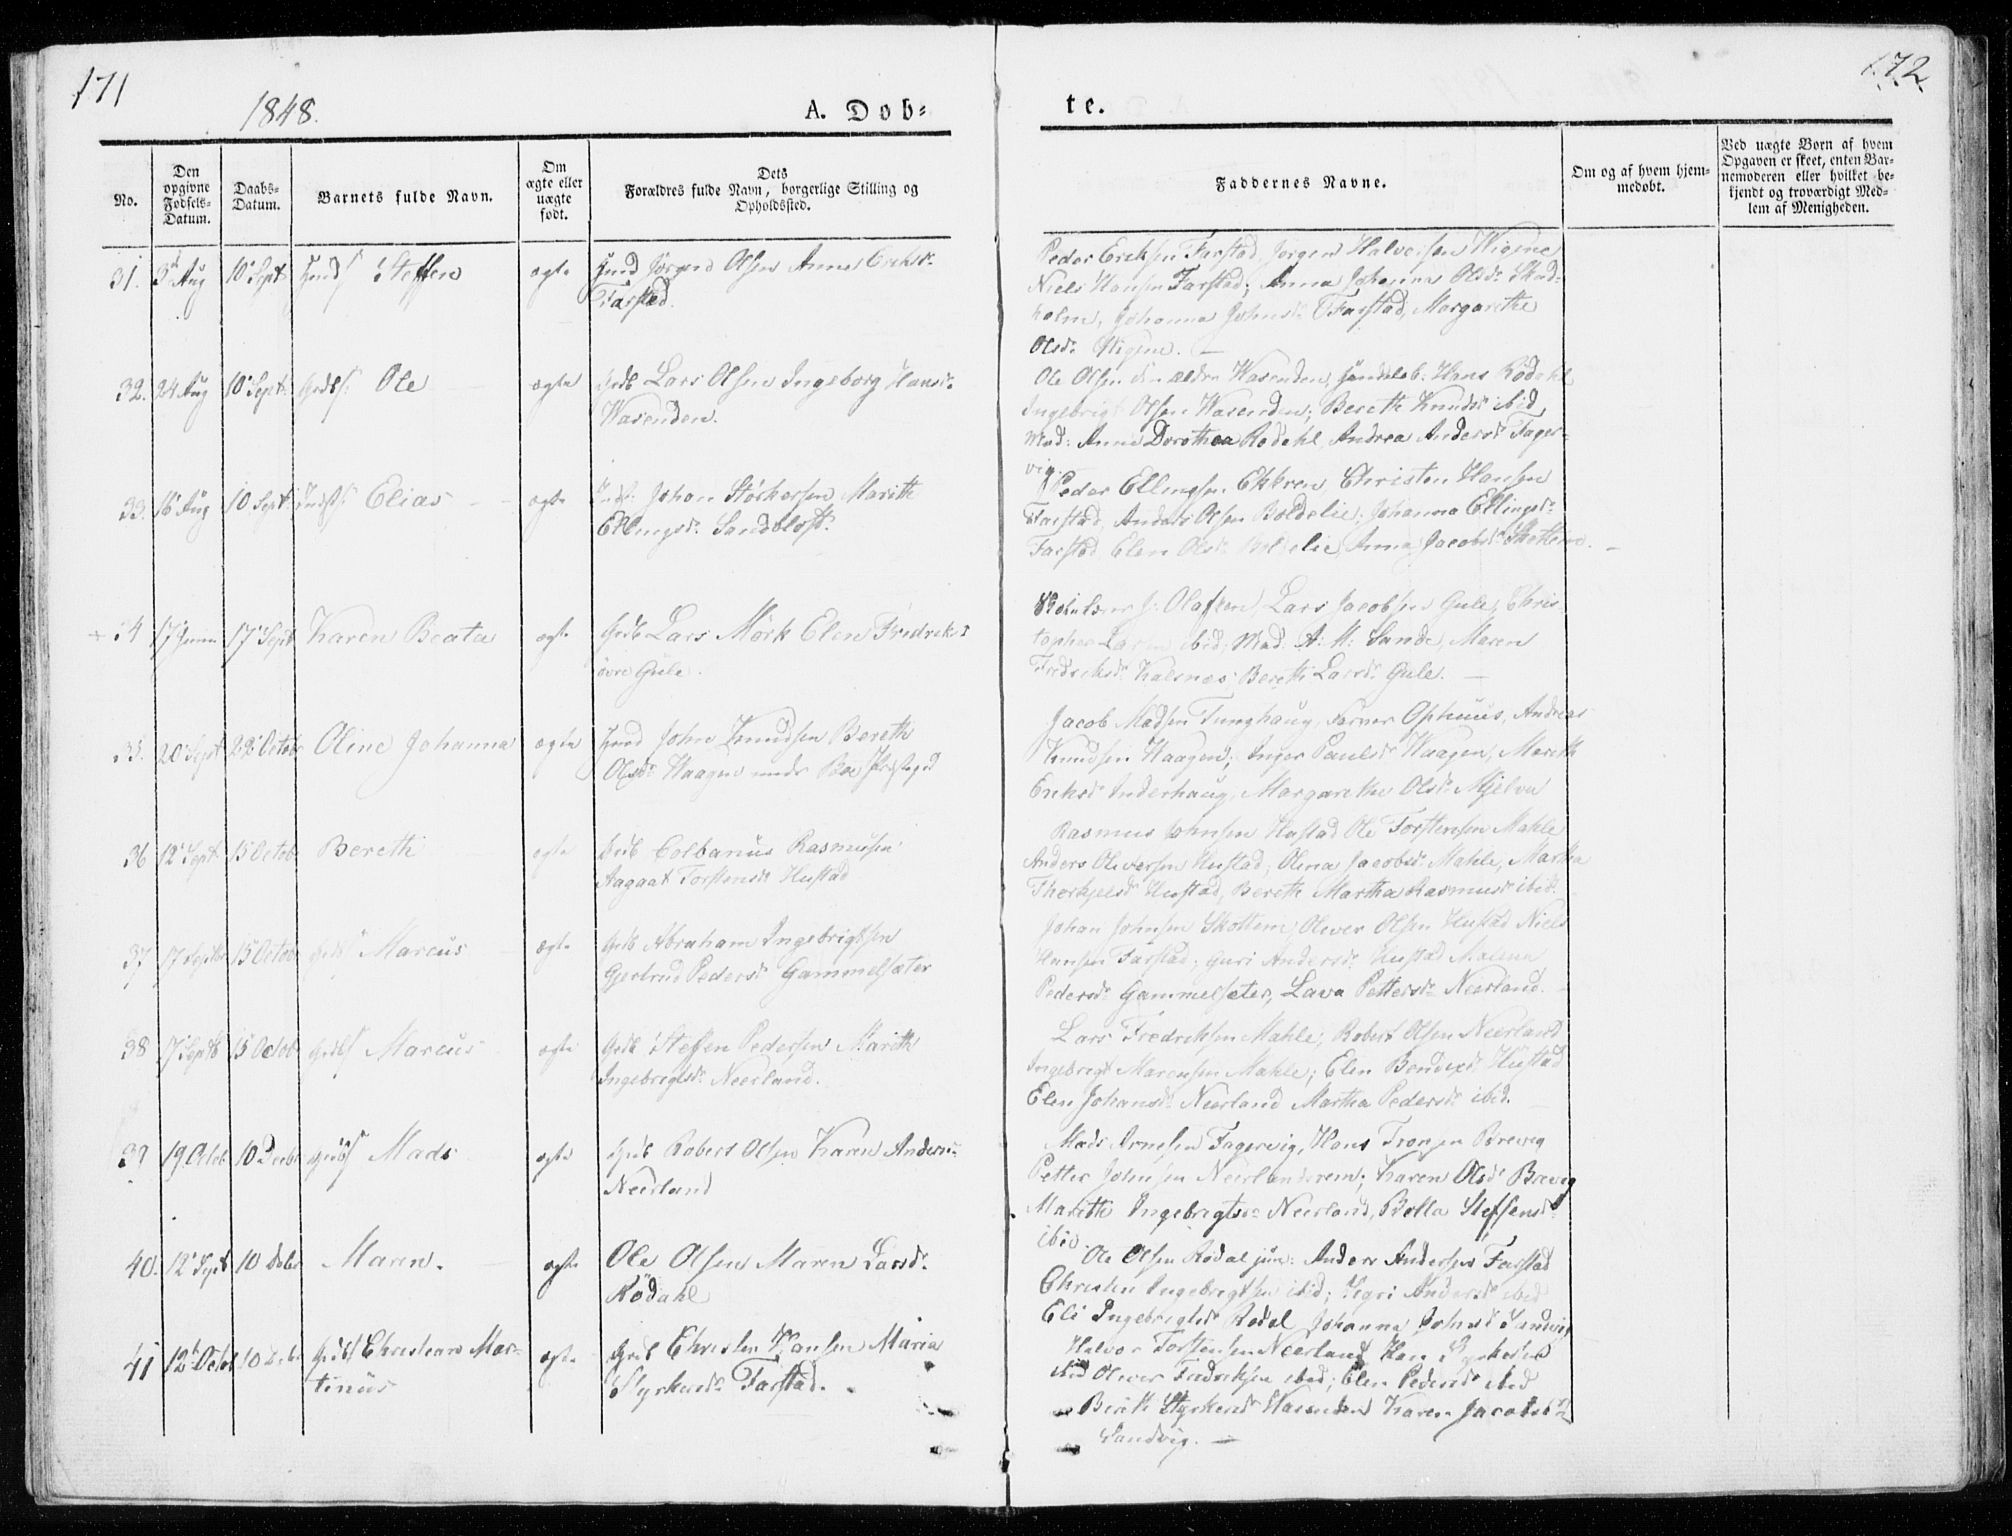 171
172
1848.
A. Døb-
te.
No.
Den opgivne Fødsels-Datum.
Daabs-Datum.
Barnets fulde Navn.
Om ægte eller uægte født.
Dets Forældres fulde Navn, borgerlige Stilling og Opholdssted.
Faddernes Navne.
Om og af hvem hjemmedøbt.
Ved uægte Børn af hvem Opgaven er skeet, enten Barnemoderen eller hvilket bekjendt og troværdigt Medlem af Menigheden.
31. 3 Aug 10 Sept Steffen ægte Jørgen Olsen Anne Eriksd.
Farstad.
Peder Eriksen Farstad, Jørgen Halvorsen Wigene
Niels Hansen Farstad; Anna Johanna Olsd.
holm, Johanna Johnsd. Farstad, Margarethe
Olsd. Wigene.
32. 24 Aug 10 Sept. Ole ægte Lars Olsen Ingeborg Hansd.
Wasenden.
Ole Olsen den ældre Wasenden, Hans Rødahl
Ingebrigt Olsen Wasenden; Bereth Knudsd. ibid
Mad: Anne Dorothea Rødahl, Andrea Andersd. Fager-
vig.
33. 16 Aug 10 Sept Elias ægte Johan Størkersen Marith
Ellingsd. Sandblost.
Peder Ellingsen Ekkren, Christen Hansen
Farstad, Anders Olsen Boldelie; Johanna Ellingsd.
Farstad Elen Olsd. Boldelie, Anna Jacobsd. Skottem.
+ 34 17 Juni 17 Sept Karen Beata ægte Lars Mørk Elen Fredriks
øvre Gule.
J: Olafsen, Lars Jacobsen Gule, Chris
topher Larsen ibid; Mad: A: M: Sande, Maren
Fredriksd. Kalsnæs Bereth Larsd. Gule.
35. 20 Sept 22 Octob Oline Johanna ægte John Knudsen Bereth
Olsd. Haagen under Boe Præstegd
Jacob Madsen Tunghaug, Ophuus, Andreas
Knudsen Haagen; Inger Paulsd. Haagen, Marith
Eriksd. Inderhaug, Margarethe Olsd. Mjelva
36 12 Sept 15 Octob Bereth ægte Colbanus Rasmussen
Aagaat Torstensd. Hustad
Rasmus Johnsen Hustad Ole Torstensen Mahle
Anders Oliversen Hustad; Olena Jacobsd. Mahle, Martha
Thorkjelsd. Hustad, Bereth Martha Rasmusd. ibid.
37 17 Septb 15 Octob Marcus ægte Abraham Ingebrigtsen
Gjertrud Pedersd. Gammelsæter
Johan Johnsen Skottem, Oliver Olsen Hustad Niels
Hansen Farstad; Guri Andersd. Hustad Malena
Pedersd. Gammelsæter, Lava Pettersd. Neerland.
38 17 Septb 15 Octob Marcus ægte Steffen Pedersen Marith
Ingebrigtsd. Neerland.
Lars Fredriksen Mahle, Robert Olsen Neerland
Ingebrigt Marcusen Mahle; Elen Bendixd. Hustad
Elen Johansd. Neerland Martha Pedersd. ibid.
39 19 Octob 10 Decb Mads ægte Robert Olsen Karen Anders-
Neerland
Mads Arnesen Fagervig, Hans Trongen Brevig
Petter Johnsen Neerlandsrem; Karen Olsd. Brevig
Marith Ingebrigtsd. Neerland, Bella Steffensd.
ibid
40. 12 Sept 10 Maren. ægte Ole Olsen Maren Larsd.
Rødahl
Ole Olsen Rødal jun: Anders Andersen Farstad
Christen Ingebrigtsen ibid; Andersd. ibid
Eli Ingebrigtsd. Rødal Johanna Johnsd. Sandvig
41 12 Octob 10 Christian Mar-
tinus ægte Christen Hansen Maria
Styrkersd. Farstad.
Halvor Torstensen Neerland Hans
ibid Oliver Fredriksen ibid; Elen Pedersd. ibid
Bereth Styrkersd. Wasenden Karen Jacobsd.
Sandvig.